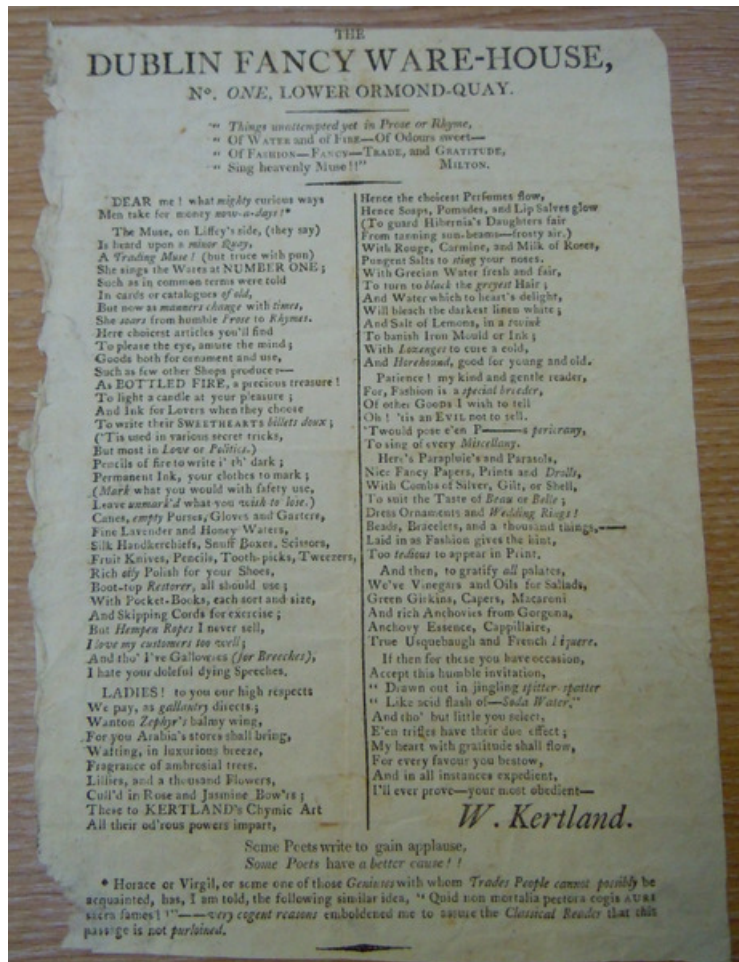 THE
DUBLIN FANCY WARE-HOUSE,
Nº. ONE, LOWER ORMOND-QUAY.
" Things unattempted yet in Prose or Rhyme,
" Of WATER and of FIRE—Of Odours sweet—
" Of FASHION—FANCY—TRADE, and GRATITUDE,
" Sing heavenly Muse!!" MILTON.
DEAR me! what mighty curious ways
Men take for money now-a-days!*
The Muse, on Liffey's side, (they say)
Is heard upon a minor Quay,
A Trading Muse! (but truce with pun)
She sings the Wares at NUMBER ONE;
Such as in common terms were told
In cards or catalogues of old,
But now as manners change with times,
She soars from humble Prose to Rhymes.
Here choicest articles you'll find
To please the eye, amuse the mind;
Goods both for ornament and use,
Such as few other Shops produce:—
As BOTTLED FIRE, a precious treasure!
To light a candle at your pleasure;
And Ink for Lovers when they choose
To write their SWEETHEARTS billets doux;
('Tis used in various secret tricks,
But most in Love or Politics.)
Pencils of fire to write i' th' dark;
Permanent Ink, your clothes to mark;
(Mark what you would with safety use,
Leave unmark'd what you wish to lose.)
Canes, empty Purses, Gloves and Garters,
Fine Lavender and Honey Waters,
Silk Handkerchiefs, Snuff Boxes, Scissors,
Fruit Knives, Pencils, Tooth-picks, Tweezers,
Rich oily Polish for your Shoes,
Boot-top Restorer, all should use;
With Pocket-Books, each sort and size,
And Skipping Cords for exercise;
But Hempen Ropes I never sell,
I love my customers too well;
And tho' I've Gallowses (for Breeches),
I hate your doleful dying Speeches.
LADIES! to you our high respects
We pay, as gallantry directs;
Wanton Zephyr's balmy wing,
For you Arabia's stores shall bring,
Wafting, in luxurious breeze,
Fragrance of ambrosial trees.
Lillies, and a thousand Flowers,
Cull'd in Rose and Jasmine Bow'rs;
These to KERTLAND's Chymic Art
All their od'rous powers impart,
Hence the choicest Perfumes flow,
Hence Soaps, Pomades, and Lip Salves glow
(To guard Hibernia's Daughters fair
From tanning sun-beams—frosty air.)
With Rouge, Carmine, and Milk of Roses,
Pungent Salts to sting your noses.
With Grecian Water fresh and fair,
To turn to black the greyest Hair;
And Water which to heart's delight,
Will bleach the darkest linen white;
And Salt of Lemons, in a twink
To banish Iron Mould or Ink;
With Lozenges to cure a cold,
And Horehound, good for young and old.
Patience! my kind and gentle reader,
For, Fashion is a special breeder,
Of other Goods I wish to tell
Oh! 'tis an EVIL not to sell.
'Twould pose e'en P———s pericrany,
To sing of every Miscellany.
Here's Parapluie's and Parasols,
Nice Fancy Papers, Prints and Drolls,
With Combs of Silver, Gilt, or Shell,
To suit the Taste of Beau or Belle;
Dress Ornaments and Wedding Rings!
Beads, Bracelets, and a thousand things,——
Laid in as Fashion gives the hint,
Too tedious to appear in Print.
And then, to gratify all palates,
We've Vinegars and Oils for Sallads,
Green Girkins, Capers, Macaroni
And rich Anchovies from Gorgona,
Anchovy Essence, Cappillaire,
True Usquebaugh and French Liquere.
If then for these you have occasion,
Accept this humble invitation,
" Drawn out in jingling spitter-spatter
" Like acid flash of—Soda Water."
And tho' but little you select,
E'en trifles have their due effect;
My heart with gratitude shall flow,
For every favour you bestow,
And in all instances expedient,
I'll ever prove—your most obedient—
W. Kertland.
Some Poets write to gain applause,
Some Poets have a better cause!!
* Horace or Virgil, or some one of those Geniuses with whom Trades People cannot possibly be
acquainted, has, I am told, the following similar idea, " Quid non mortalia pectora cogis AURI
sacra fames!!"——very cogent reasons emboldened me to assure the Classical Reader that this
passage is not purloined.